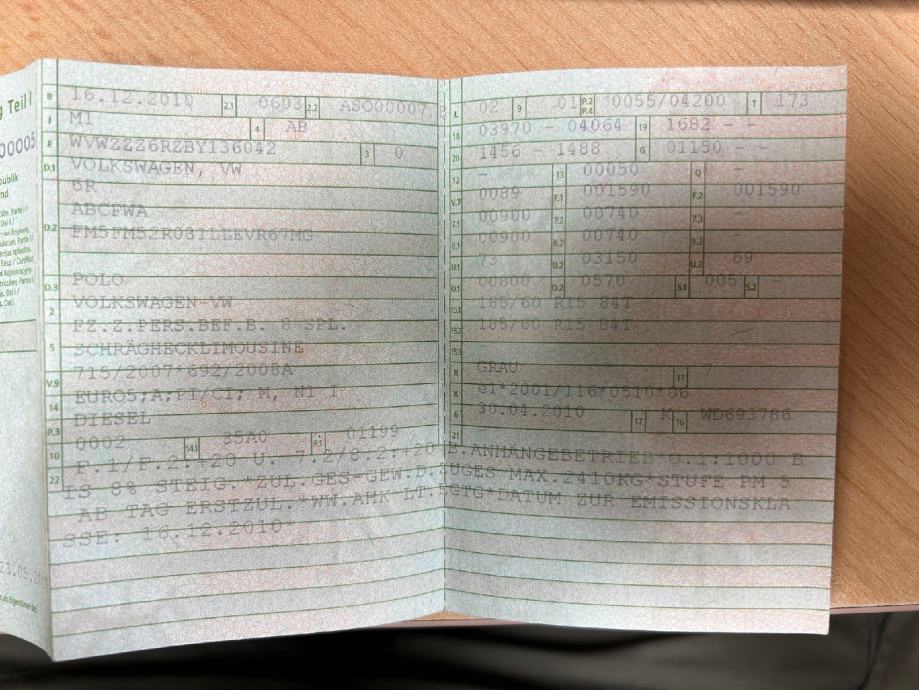 g Teil I
00005
publik
nd
B 16.12.2010 2.1 0603 2.2 ASO00007
J M1 4 AB
E WVWZZZ6RZBY136042 3 0
D.1 VOLKSWAGEN, VW
6R
D.2 ABCFWA
FM5FM52R031LLEVR67MG
D.3 POLO
2 VOLKSWAGEN-VW
FZ.Z.PERS.BEF.B. 8 SPL.
5 SCHRÄGHECKLIMOUSINE
V.9 715/2007*692/2008A
14 EURO5;A;PI/CI; M, N1 I
P.3 DIESEL
10 0002 14.1 35A0 P.1 01199
L 02 9 01 P.2 P.4 0055/04200 T 173
18 03970 - 04064 19 1682 - -
20 1456 - 1488 G 01150 - -
12 - 13 00050 Q -
V.7 0089 F.1 001590 F.2 001590
7.1 00900 7.2 00740 7.3 -
8.1 00900 8.2 00740 8.3 -
U.1 73 U.2 03150 U.3 69
O.1 00800 O.2 0570 S.1 005 S.2 -
15.1 185/60 R15 84T
15.2 185/60 R15 84T
15.3
R GRAU 11 7
K e1*2001/116*0510*06
6 30.04.2010 17 K 16 WD693786
21 -
22 F.1/F.2:+20 U. 7.2/8.2:+20 B.ANHÄNGEBETRIEB*O.1:1000 B
IS 8% STEIG.*ZUL.GES-GEW.D.ZUGES MAX.2410KG*STUFE PM 5
AB TAG ERSTZUL.*WW.AHK LT.EGTG*DATUM ZUR EMISSIONSKLA
SSE: 16.12.2010*
23.05.